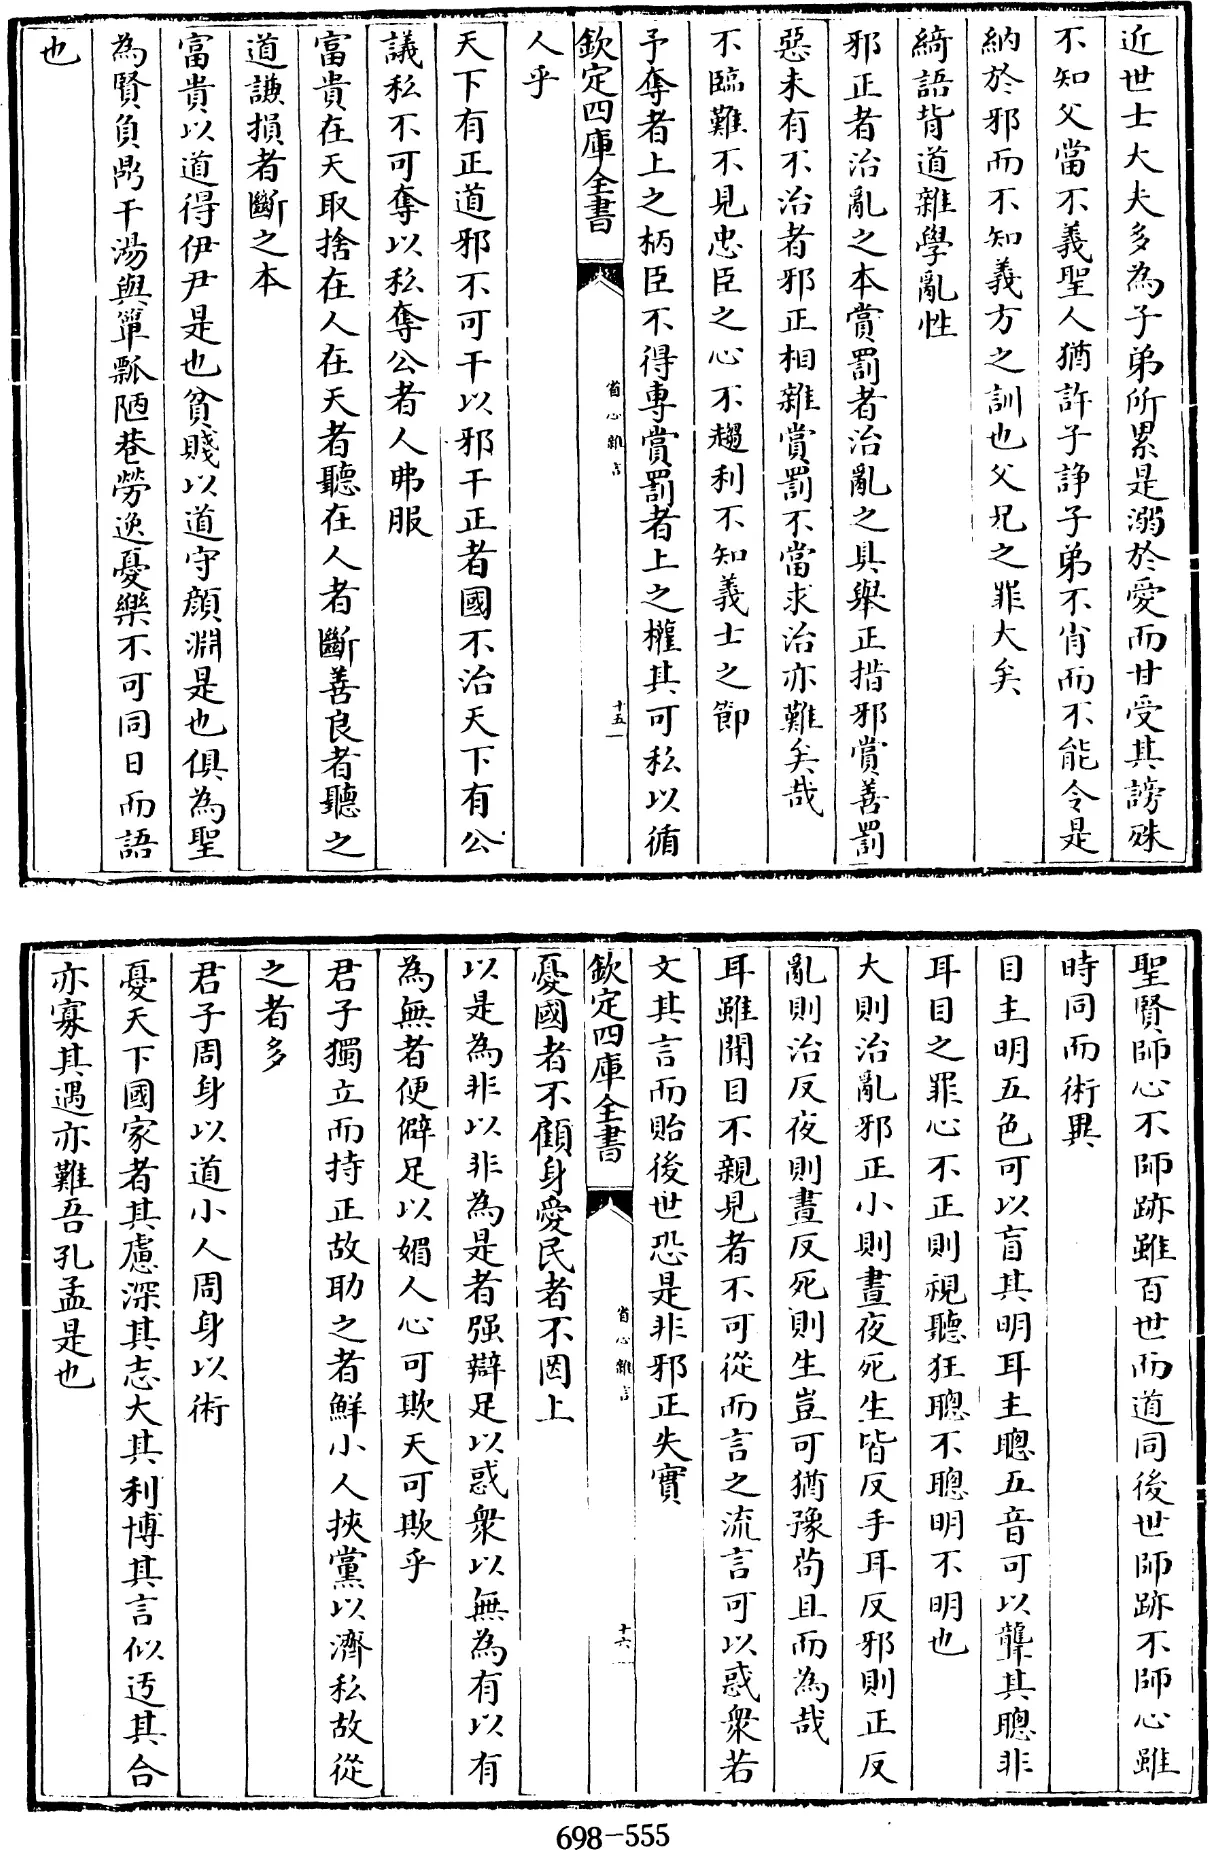 近世士大夫多為子弟所累是溺於愛而甘受其謗殊
不知父當不義聖人猶許子諍子弟不肖而不能令是
納於邪而不知義方之訓也父兄之罪大矣
綺語背道雜學亂性
邪正者治亂之本賞罰者治亂之具舉正措邪賞善罰
惡未有不治者邪正相雜賞罰不當求治亦難矣哉
不臨難不見忠臣之心不趨利不知義士之節
予奪者上之柄臣不得專賞罰者上之權其可私以循
欽定四庫全書
省心雜言
十五
人乎
天下有正道邪不可干以邪干正者國不治天下有公
議私不可奪以私奪公者人弗服
富貴在天取捨在人在天者聽在人者斷善良者聽之
道謙損者斷之本
富貴以道得伊尹是也貧賤以道守顔淵是也俱為聖
為賢負鼎干湯與簞瓢陋巷勞逸憂樂不可同日而語
也
聖賢師心不師跡雖百世而道同後世師跡不師心雖
時同而術異
目主明五色可以盲其明耳主聰五音可以聾其聰非
耳目之罪心不正則視聽狂聰不聰明不明也
大則治亂邪正小則晝夜死生皆反手耳反邪則正反
亂則治反夜則晝反死則生豈可猶豫苟且而為哉
耳雖聞目不親見者不可從而言之流言可以惑衆若
文其言而貽後世恐是非邪正失實
欽定四庫全書
省心雜言
十六
憂國者不顧身愛民者不罔上
以是為非以非為是者强辯足以惑衆以無為有以有
為無者便僻足以媚人心可欺天可欺乎
君子獨立而持正故助之者鮮小人挾黨以濟私故從
之者多
君子周身以道小人周身以術
憂天下國家者其慮深其志大其利博其言似迃其合
亦寡其遇亦難吾孔孟是也
698-555